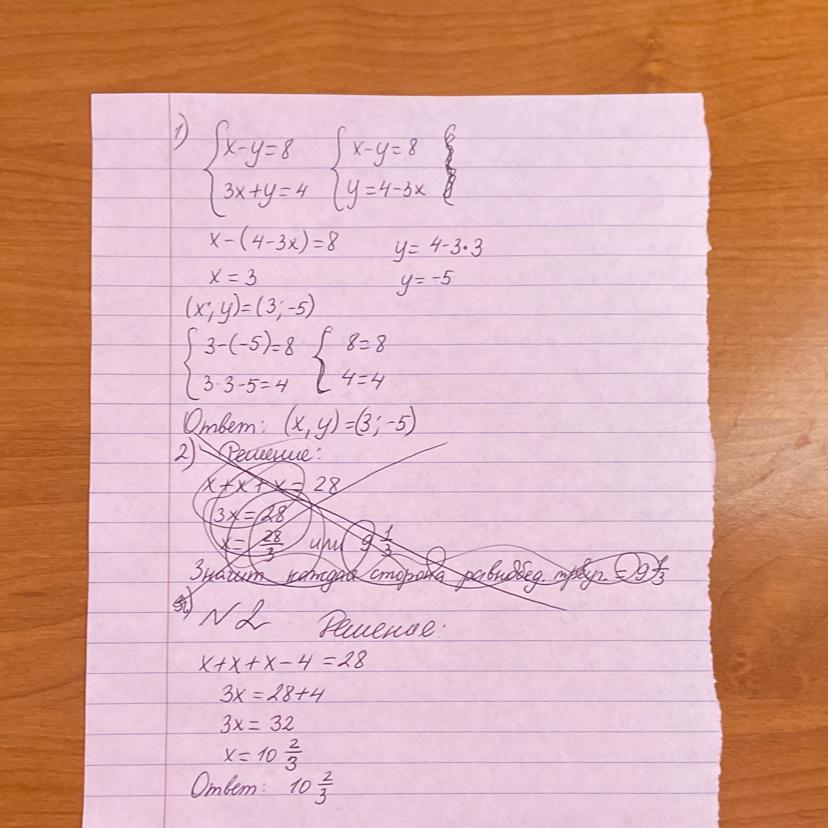 1) { x-y=8 { x-y=8
3x+y=4 y=4-3x
x-(4-3x)=8 y= 4-3·3
x = 3 y=-5
(x; y)=(3; -5)
{ 3-(-5)=8 { 8=8
3·3-5=4 4=4
Ответ: (x, y)=(3; -5)
2) Решение:
x+x+x= 28
3x=28
x= 28/3 или 9 1/3
Значит каждая сторона равнобед. треуг. = 9 1/3
N2 Решение:
x+x+x-4=28
3x=28+4
3x= 32
x=10 2/3
Ответ: 10 2/3